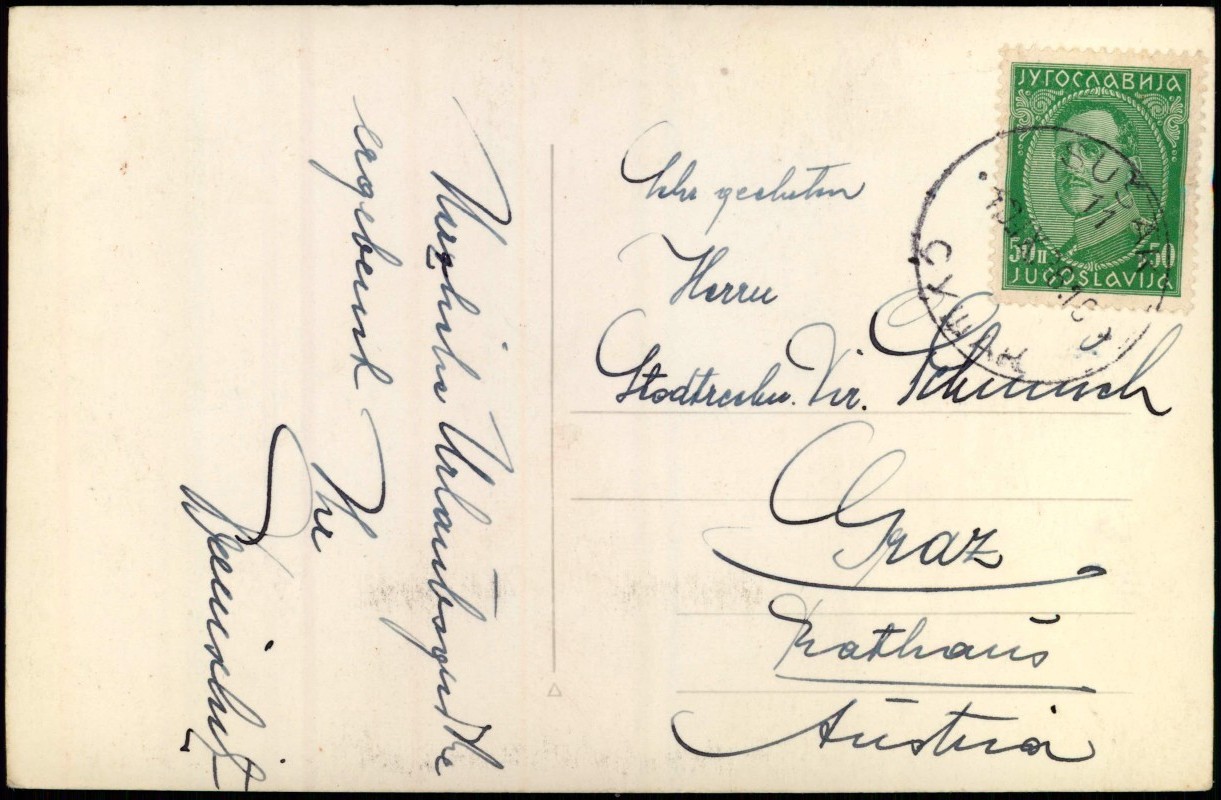 Herzliche Urlaubsgrüße
ergebenst
Ihr
Sehr geehrten
Herrn
Stadtrechn. Dir.
Graz
Rathaus
Austria
ЈУГОСЛАВИЈА
50 П 50
JUGOSLAVIJA
SUŠAK
СУШАК